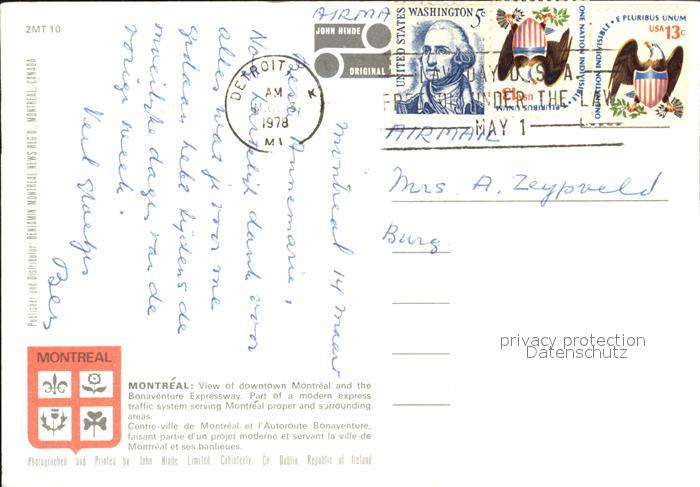 2MT 10
AIRMA
JOHN HINDE
ORIGINAL
UNITED STATES
WASHINGTON 5c
USA 13c
ONE NATION INDIVISIBLE
E PLURIBUS UNUM
ONE NATION INDIVISIBLE
E PLURIBUS UNUM
USA 13c
DETROIT,
AM
1978
MI
LAW DAY U.S.A.
FREEDOM UNDER THE LAW
MAY 1
AIRMAIL
Mrs. A. Zeypveld
Burg.
Montreal 14 maart
Beste Annemarie,
Nog hartelijk dank voor
alles wat je voor me
gedaan hebt tijdens de
moeilijke dagen van de
vorige week.
Veel groetjes
Ber
Publisher and Distributor: BENJAMIN MONTREAL NEWS REG'D., MONTREAL, CANADA
privacy protection
Datenschutz
MONTREAL
MONTRÉAL: View of downtown Montréal and the
Bonaventure Expressway. Part of a modern express
traffic system serving Montréal proper and surrounding
areas.
Centre-ville de Montréal et l'Autoroute Bonaventure,
faisant partie d'un projet moderne et servant la ville de
Montréal et ses banlieues.
Photographed and Printed by John Hinde Limited, Cabinteely, Co. Dublin, Republic of Ireland